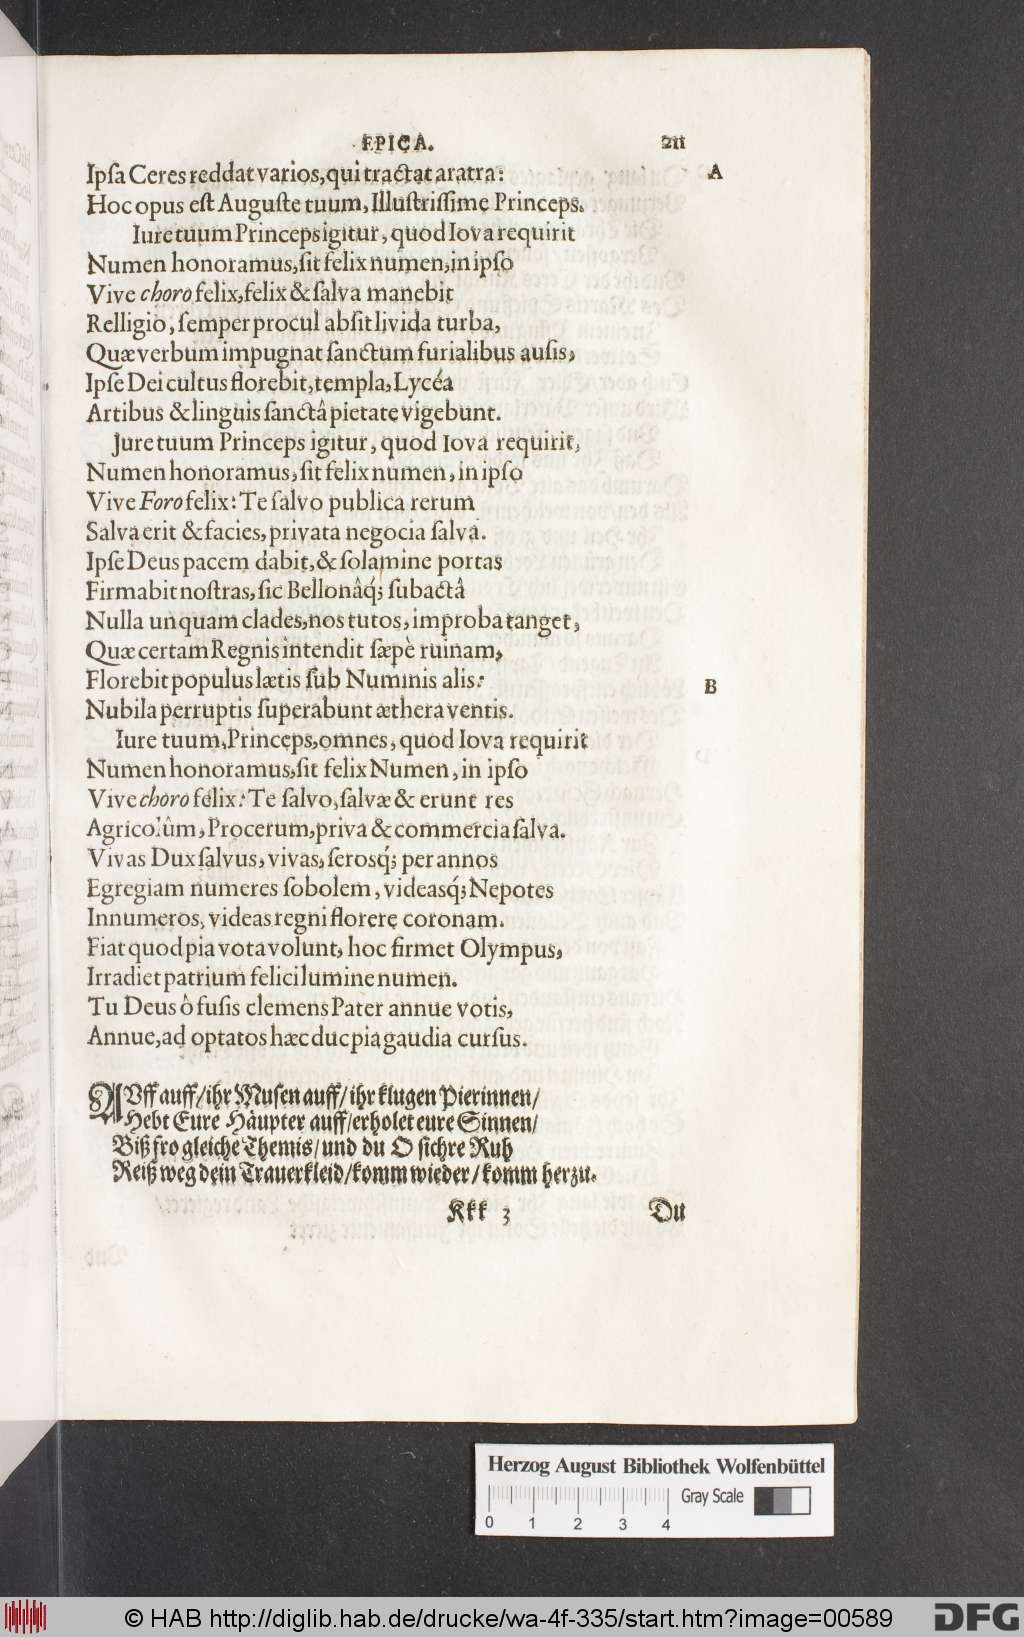 EPICA. 211
Ipſa Ceres reddat varios, qui tractat aratra: A
Hoc opus eſt Auguſte tuum, Illuſtriſſime Princeps.
Iure tuum Princeps igitur, quod Iova requirit
Numen honoramus, ſit felix numen, in ipſo
Vive choro felix, felix & ſalva manebit
Relligio, ſemper procul abſit livida turba,
Quæ verbum impugnat ſanctum furialibus auſis,
Ipſe Dei cultus florebit, templa, Lycéa
Artibus & linguis ſanctâ pietate vigebunt.
Jure tuum Princeps igitur, quod Iova requirit,
Numen honoramus, ſit felix numen, in ipſo
Vive Foro felix: Te ſalvo publica rerum
Salva erit & facies, privata negocia ſalva.
Ipſe Deus pacem dabit, & ſolamine portas
Firmabit noſtras, ſic Bellonâq́; ſubactâ
Nulla unquam clades, nos tutos, improba tanget,
Quæ certam Regnis intendit ſæpè ruinam,
Florebit populus lætis ſub Numinis alis: B
Nubila perruptis ſuperabunt æthera ventis.
Iure tuum, Princeps, omnes, quod Iova requirit
Numen honoramus, ſit felix Numen, in ipſo
Vive choro felix: Te ſalvo, ſalvæ & erunt res
Agricolûm, Procerum, priva & commercia ſalva.
Vivas Dux ſalvus, vivas, ſerosq́; per annos
Egregiam numeres ſobolem, videasq́; Nepotes
Innumeros, videas regni florere coronam.
Fiat quod pia vota volunt, hoc firmet Olympus,
Irradiet patrium felici lumine numen.
Tu Deus ô fuſis clemens Pater annue votis,
Annue, ad optatos hæc duc pia gaudia curſus.
AUff auff/ ihr Muſen auff/ ihr klugen Pierinnen/
Hebt Eure Häupter auff/ erholet eure Sinnen/
Biß fro gleiche Themis/ und du O ſichre Ruh
Reiß weg dein Trauerkleid/ komm wieder/ komm herzu.
Kkk 3 Du
Herzog August Bibliothek Wolfenbüttel
Gray Scale
0 1 2 3 4
© HAB http://diglib.hab.de/drucke/wa-4f-335/start.htm?image=00589 DFG